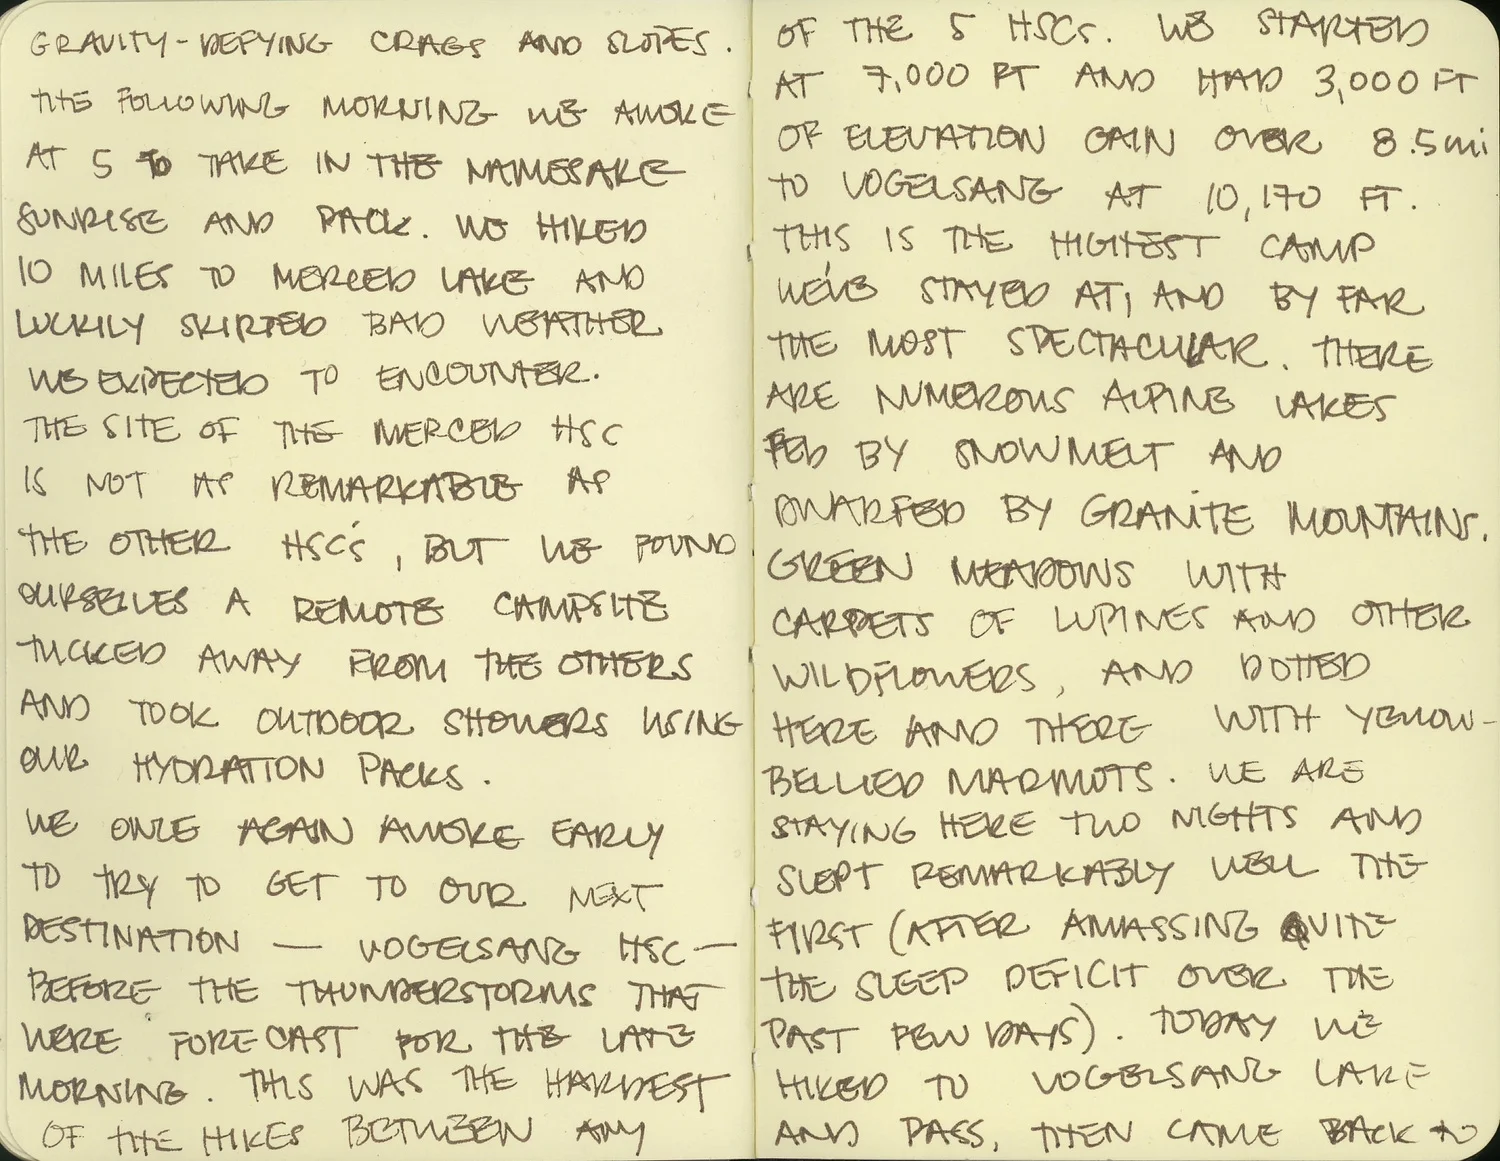 GRAVITY-DEFYING CRAGS AND SLOPES.
THE FOLLOWING MORNING WE AWOKE
AT 5 TO TAKE IN THE NAMESAKE
SUNRISE AND PACK. WE HIKED
10 MILES TO MERCED LAKE AND
LUCKILY SKIRTED BAD WEATHER
WE EXPECTED TO ENCOUNTER.
THE SITE OF THE MERCED HSC
IS NOT AS REMARKABLE AS
THE OTHER HSC'S, BUT WE FOUND
OURSELVES A REMOTE CAMPSITE
TUCKED AWAY FROM THE OTHERS
AND TOOK OUTDOOR SHOWERS USING
OUR HYDRATION PACKS.
WE ONCE AGAIN AWOKE EARLY
TO TRY TO GET TO OUR NEXT
DESTINATION — VOGELSANG HSC —
BEFORE THE THUNDERSTORMS THAT
WERE FORECAST FOR THE LATE
MORNING. THIS WAS THE HARDEST
OF THE HIKES BETWEEN ANY
OF THE 5 HSCs. WE STARTED
AT 7,000 FT AND HAD 3,000 FT
OF ELEVATION GAIN OVER 8.5mi
TO VOGELSANG AT 10,170 FT.
THIS IS THE HIGHEST CAMP
WE'VE STAYED AT, AND BY FAR
THE MOST SPECTACULAR. THERE
ARE NUMEROUS ALPINE LAKES
FED BY SNOWMELT AND
DWARFED BY GRANITE MOUNTAINS.
GREEN MEADOWS WITH
CARPETS OF LUPINES AND OTHER
WILDFLOWERS, AND DOTTED
HERE AND THERE WITH YELLOW-
BELLIED MARMOTS. WE ARE
STAYING HERE TWO NIGHTS AND
SLEPT REMARKABLY WELL THE
FIRST (AFTER AMASSING QUITE
THE SLEEP DEFICIT OVER THE
PAST FEW DAYS). TODAY WE
HIKED TO VOGELSANG LAKE
AND PASS, THEN CAME BACK TO